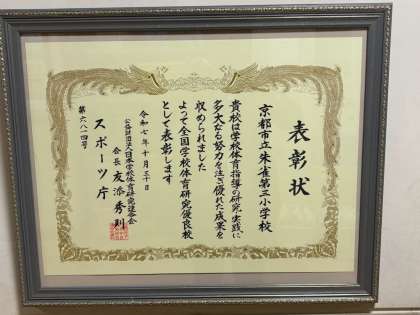 表彰状
京都市立朱雀第三小学校
貴校は学校体育指導の研究実践に
多大なる努力を注ぎ優れた成果を
収められました
よって全国学校体育研究優良校
として表彰します
令和七年十月三十日
公益財団法人日本学校体育研究連合会
会長 友添秀則
スポーツ庁
第六八四号